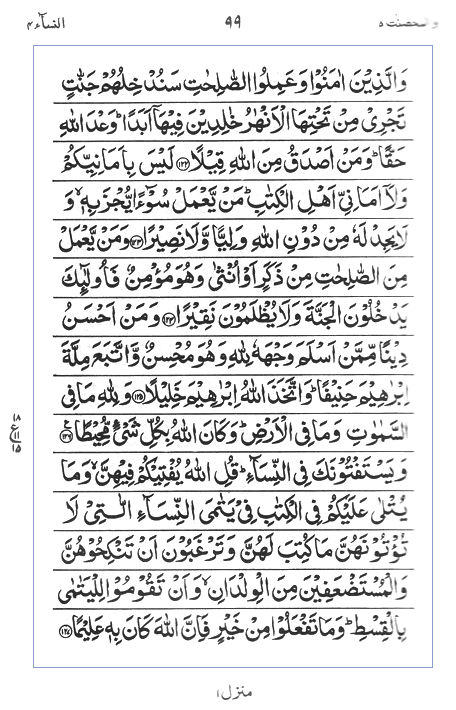 والمحصنت ۵ ۹۹ النسآء ۴
وَالَّذِیْنَ اٰمَنُوْا وَعَمِلُوا الصّٰلِحٰتِ سَنُدْخِلُهُمْ جَنّٰتٍ
تَجْرِیْ مِنْ تَحْتِهَا الْاَنْهٰرُ خٰلِدِیْنَ فِیْهَاۤ اَبَدًا ؕ وَعْدَ اللّٰهِ
حَقًّا ؕ وَمَنْ اَصْدَقُ مِنَ اللّٰهِ قِیْلًا ﴿۱۲۲﴾ لَیْسَ بِاَمَانِیِّكُمْ
وَلَاۤ اَمَانِیِّ اَهْلِ الْكِتٰبِ ؕ مَنْ یَّعْمَلْ سُوْٓءًا یُّجْزَ بِهٖ ۙ وَ
لَا یَجِدْ لَهٗ مِنْ دُوْنِ اللّٰهِ وَلِیًّا وَّلَا نَصِیْرًا ﴿۱۲۳﴾ وَمَنْ یَّعْمَلْ
مِنَ الصّٰلِحٰتِ مِنْ ذَكَرٍ اَوْ اُنْثٰی وَهُوَ مُؤْمِنٌ فَاُولٰٓئِكَ
یَدْخُلُوْنَ الْجَنَّةَ وَلَا یُظْلَمُوْنَ نَقِیْرًا ﴿۱۲۴﴾ وَمَنْ اَحْسَنُ
دِیْنًا مِّمَّنْ اَسْلَمَ وَجْهَهٗ لِلّٰهِ وَهُوَ مُحْسِنٌ وَّاتَّبَعَ مِلَّةَ
اِبْرٰهِیْمَ حَنِیْفًا ؕ وَاتَّخَذَ اللّٰهُ اِبْرٰهِیْمَ خَلِیْلًا ﴿۱۲۵﴾ وَلِلّٰهِ مَا فِی
السَّمٰوٰتِ وَمَا فِی الْاَرْضِ ؕ وَكَانَ اللّٰهُ بِكُلِّ شَیْءٍ مُّحِیْطًا ﴿۱۲۶﴾ ع
۱۸ ع ۱۱ ۱۵
وَیَسْتَفْتُوْنَكَ فِی النِّسَآءِ ؕ قُلِ اللّٰهُ یُفْتِیْكُمْ فِیْهِنَّ ۙ وَمَا
یُتْلٰی عَلَیْكُمْ فِی الْكِتٰبِ فِیْ یَتٰمَی النِّسَآءِ الّٰتِیْ لَا
تُؤْتُوْنَهُنَّ مَا كُتِبَ لَهُنَّ وَتَرْغَبُوْنَ اَنْ تَنْكِحُوْهُنَّ
وَالْمُسْتَضْعَفِیْنَ مِنَ الْوِلْدَانِ ۙ وَاَنْ تَقُوْمُوْا لِلْیَتٰمٰی
بِالْقِسْطِ ؕ وَمَا تَفْعَلُوْا مِنْ خَیْرٍ فَاِنَّ اللّٰهَ كَانَ بِهٖ عَلِیْمًا ﴿۱۲۷﴾
منزل ۱